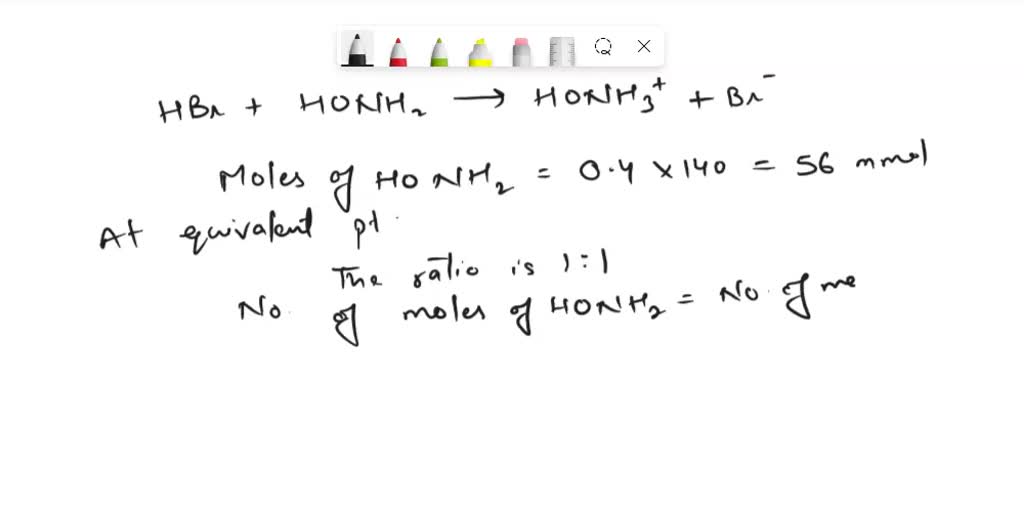 HBr + HONH₂ → HONH₃⁺ + Br⁻
Moles of HONH₂ = 0.4 × 140 = 56 mmol
At equivalent pt.
The ratio is 1:1
No. of moles of HONH₂ = No. of me